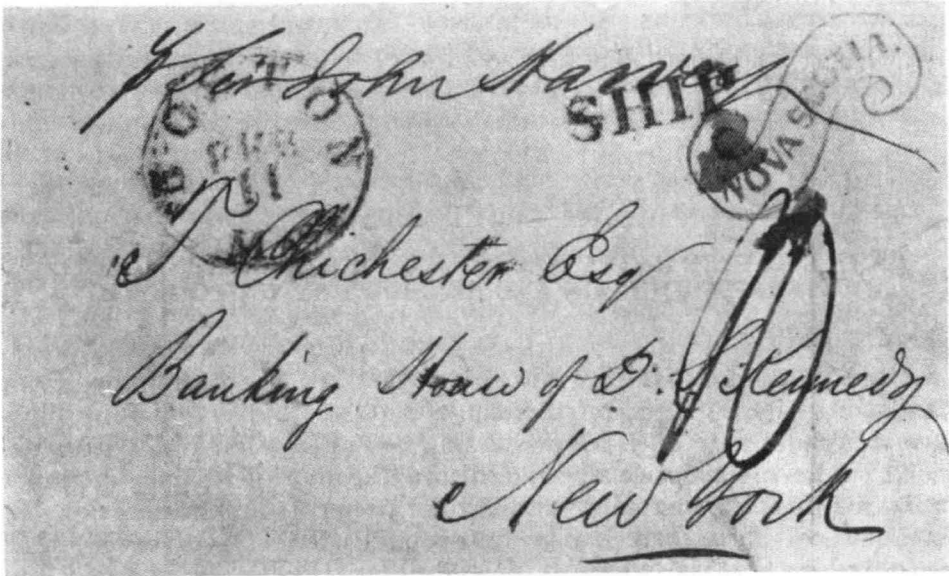 pr Sir John Harvey
BOSTON
11
SHIP
NOVA SCOTIA.
10
T Chichester Esq
Banking House of D. S. Kennedy
New York